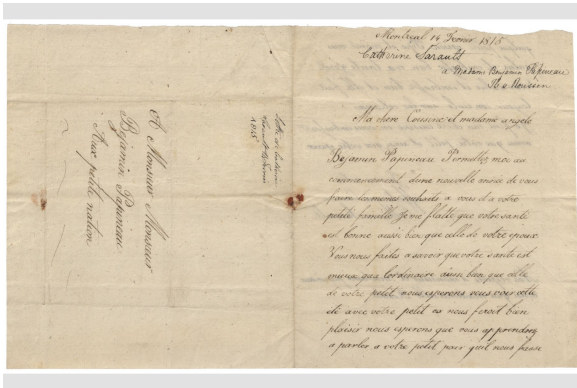 Montreal 14 Fevrier 1815
Catherine Sarault
a Madame Benjamin Papineau
Ma chere Cousine et madame angele
Bejamin Papineau Permettez moi au
commancement dune nouvelle année de vous
faire les mêmes souhaits a vous et a votre
petite famille Je me flatte que votre santé
est bonne aussi bien que celle de votre epoux
Vous nous faites a savoir que votre santé est
mieux qua lordinaire aussi bien que celle
de votre petit nous esperons vous voir cette
eté avec votre petit ce nous feroit bien
plaisir nous esperons que vous apprendrez
a parler a votre petit pour quil nous fasse
A Monsieur Monsieur
Bejamin Papineau
Aux petite nation
1815